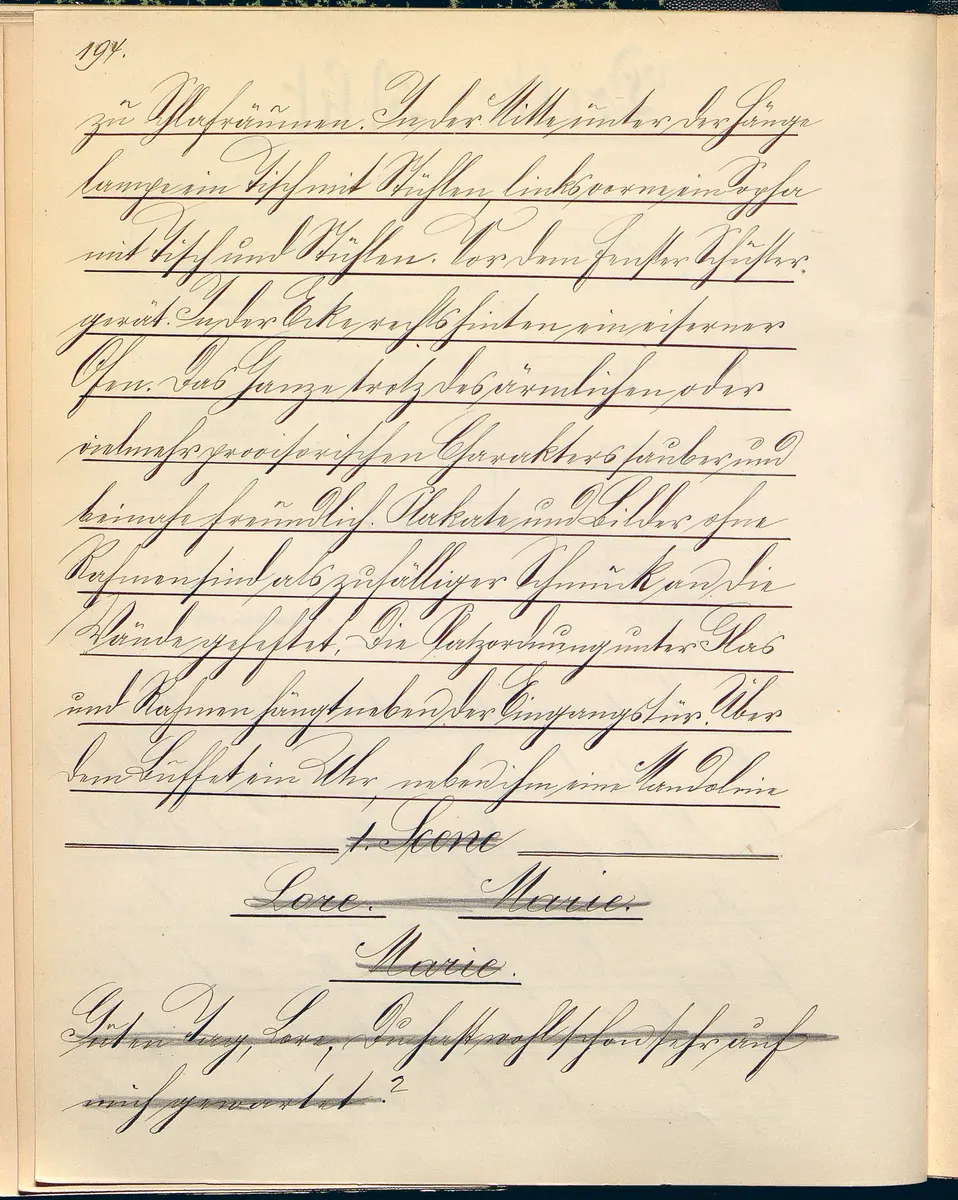 194.
zu Schlafräumen. In der Mitte unter der Hänge
lampe ein Tisch mit Stühlen, links vorne ein Sopha
mit Tisch und Stühlen. Vor dem Fenster Schuster-
gerät. In der Ecke rechts hinten ein eiserner
Ofen. Das Ganze trotz des ärmlichen oder
vielmehr provisorischen Charakters sauber und
beinahe freundlich. Plakate und Bilder ohne
Rahmen sind als zufälliger Schmuck an die
Wände geheftet. Die Platzordnung unter Glas
und Rahmen hängt neben der Eingangstür. Über
dem Buffet ein Uhr, neben ihm eine Mandoline
1. Scene
Lore. Marie.
Marie.
Guten Tag, Lore, Du hast wohl schon sehr auf
mich gewartet?